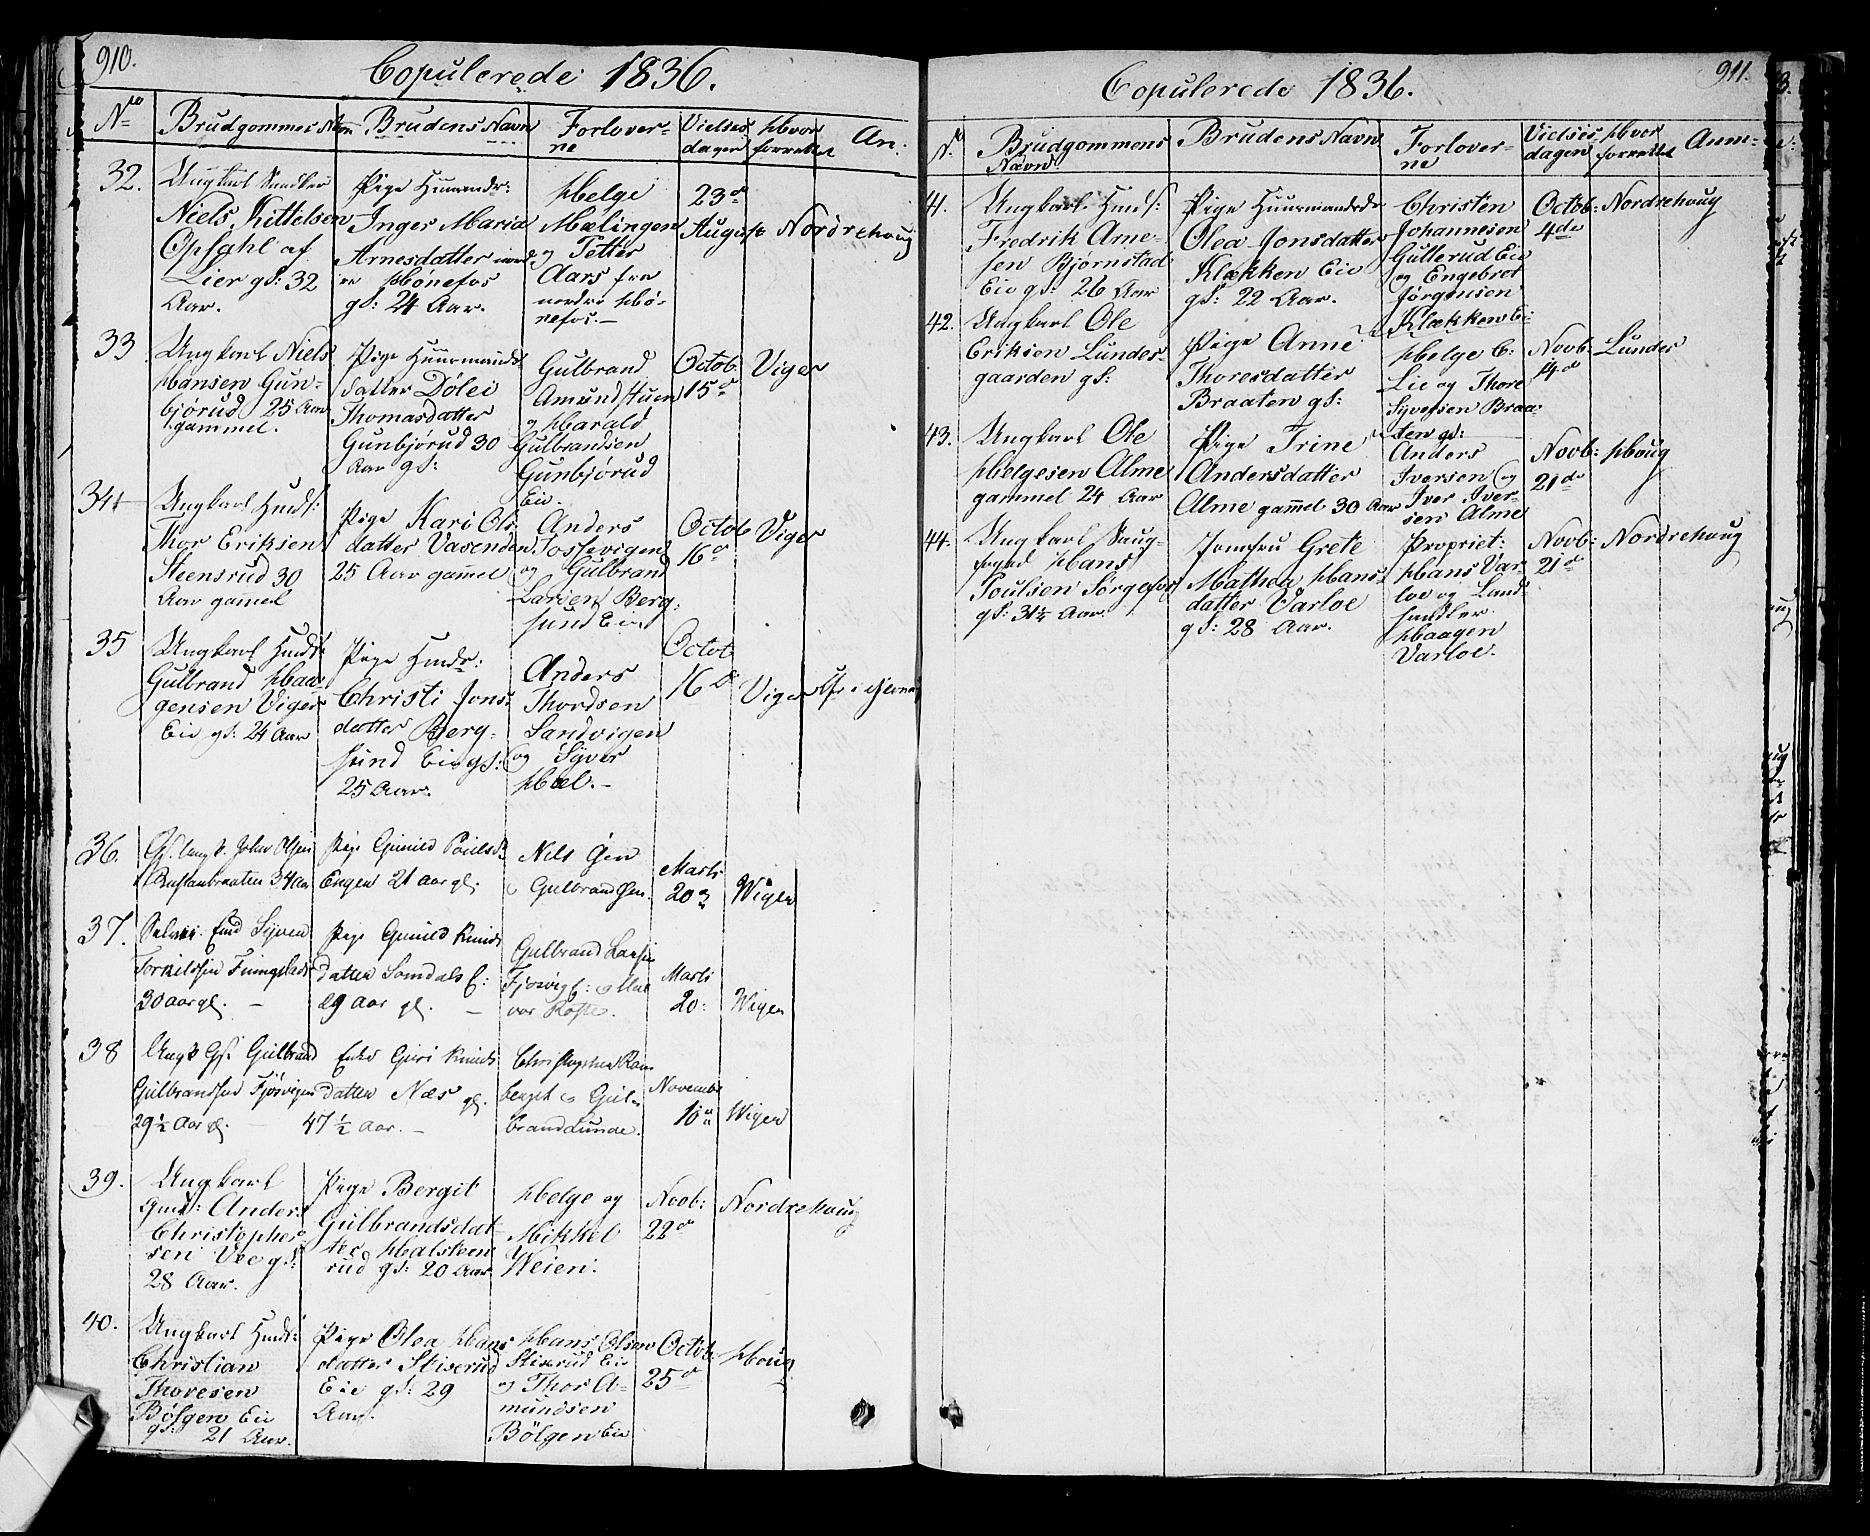 910.
Copulerede 1836.
No Brudgommes Navn Brudens Navn Forloverne Vielses dagen Hvor forrettet An:
32.
Ungkarl
Niels Kittelsen
Opsahl af
Lier gl: 32
Aar.
Pige Huusmandr:
Inger Maria
Arnesdatter
Hönefos
gl: 24 Aar.
Helge
Mælingen
og Petter
Aars fra
nordre Hö-
nefos.
23de
August
Nordrehoug
33
Ungkarl Niels
Hansen Gun-
bjørud 25 Aar
gammel.
Pige Huusmands
datter Dölei
Thomasdatter
Gunbjørud 30
Aar gl:
Gulbrand
Amundstuen
og Harald
Gulbrandsen
Gunbjørud
Eie.
Octob
15de
Viger
34
Ungkarl Huusm:
Thor Eriksen
Steensrud 30
Aar gamel
Pige Kari Ols
datter Vasenden
25 Aar gamel
Anders
Tossevigen
og Gulbrand
Larsen Berg-
sund Eie.
Octob
16de
Viger
35
Ungkarl Huusm:
Gulbrand Haa-
gensen Viger
Eie gl: 24 Aar
Pige Huusm:
Christi Jons-
datter Berg-
sund Eie gl:
25 Aar.
Anders
Thordsen
Sandvigen
og Syver
Hæl.
Octob
16de
Viger
36.
John Olsen
34 Aar
Pige Gunild Paulsd:
Engen 21 aar gl.
Nils
og Gulbrandsen.
Marts
20de
Wigen
37.
Syver
Torkildsen
30 aar gl.
Pige Gunild Knuds
datter Somdals E:
29 aar gl.
Gulbrand Larsen
Fjösvig E: og Hal
vor
Marts
20:
Wigen
38
Ungk Gs: Gulbrand
Gulbrandsen Fjösvigen
29½ Aar gl.
Enke Guri Knuds
datter Næs gl.
47½ aar.
Christopher
berget og Gul-
brand Lunde.
November
10de
Wigen
39.
Ungkarl
Gmd: Anders
Christopher
sen Vee gl:
28 Aar.
Pige Bergit
Gulbrandsdat-
ter Halsteen
rud gl: 20 Aar
Helge og
Mikkel
Weien.
Novb:
22de
Nordrehoug
40.
Ungkarl Huusm:
Christian
Thoresen
Bölgen Eie
gl: 21 Aar.
Pige Olea Hans
datter Stiserud
Eie gl: 29
Aar.
Hans Olsen
Stiserud Eie
og Thor A-
mundsen
Bölgen Eie
Octob:
25de
Houg
911.
Copulerede 1836.
No Brudgommens Navn Brudens Navn Forloverne Vielses dagen Hvor forrettet Anm:
41.
Ungkarl Husm:
Fredrik Arne-
sen Bjørnstad
Eie gl: 26 Aar
Pige Huusmandsdr
Olea Jonsdatter
Klækken Eie
gl: 22 Aar.
Christen
Johannesen
Gullerud Eie
og Engebret
Jørgensen
Klækken Ei:
Octob:
4de
Nordrehoug
42.
Ungkarl Ole
Eriksen Lunder-
gaarden gl:
Pige Anne
Thoresdatter
Braaten gl:
Helge E:
Lie og Thore
Syversen Braa-
ten gl:
Novb:
14de
Lunder
43.
Ungkarl Ole
Helgesen Alme
gammel 24 Aar
Pige Trine
Andersdatter
Alme gamel 30 Aar
Anders
Iversen og
Iver Iver-
sen Alme
Novb:
21de
Houg
44.
Ungkarl Saug-
foged Hans
Poulsen Sørgefos
gl: 31½ Aar.
Jomfru Grete
Mathea Hans-
datter Varloe
gl: 28 Aar.
Propriet:
Hans Var-
loe og Land-
handler
Haagen
Varloe.
Novb:
21de
Nordrehoug